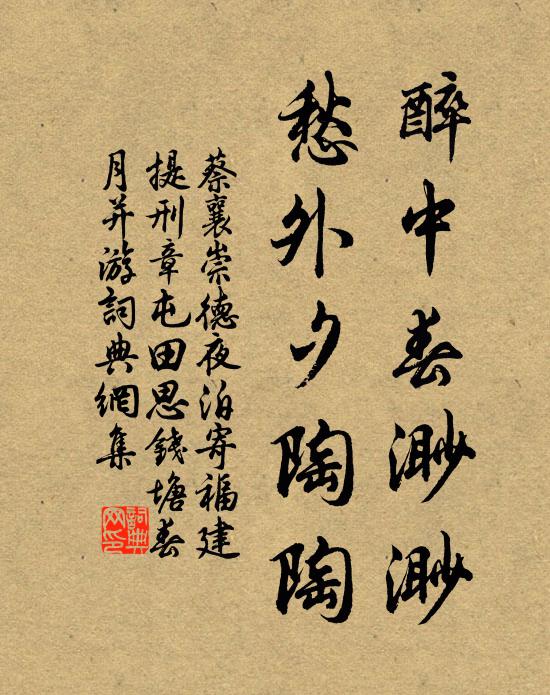 醉中春渺渺
愁外夕陶陶
蔡襄崇德夜泊寄福建
提刑章屯田思錢塘春
月并游詞典網集
詞典
网印